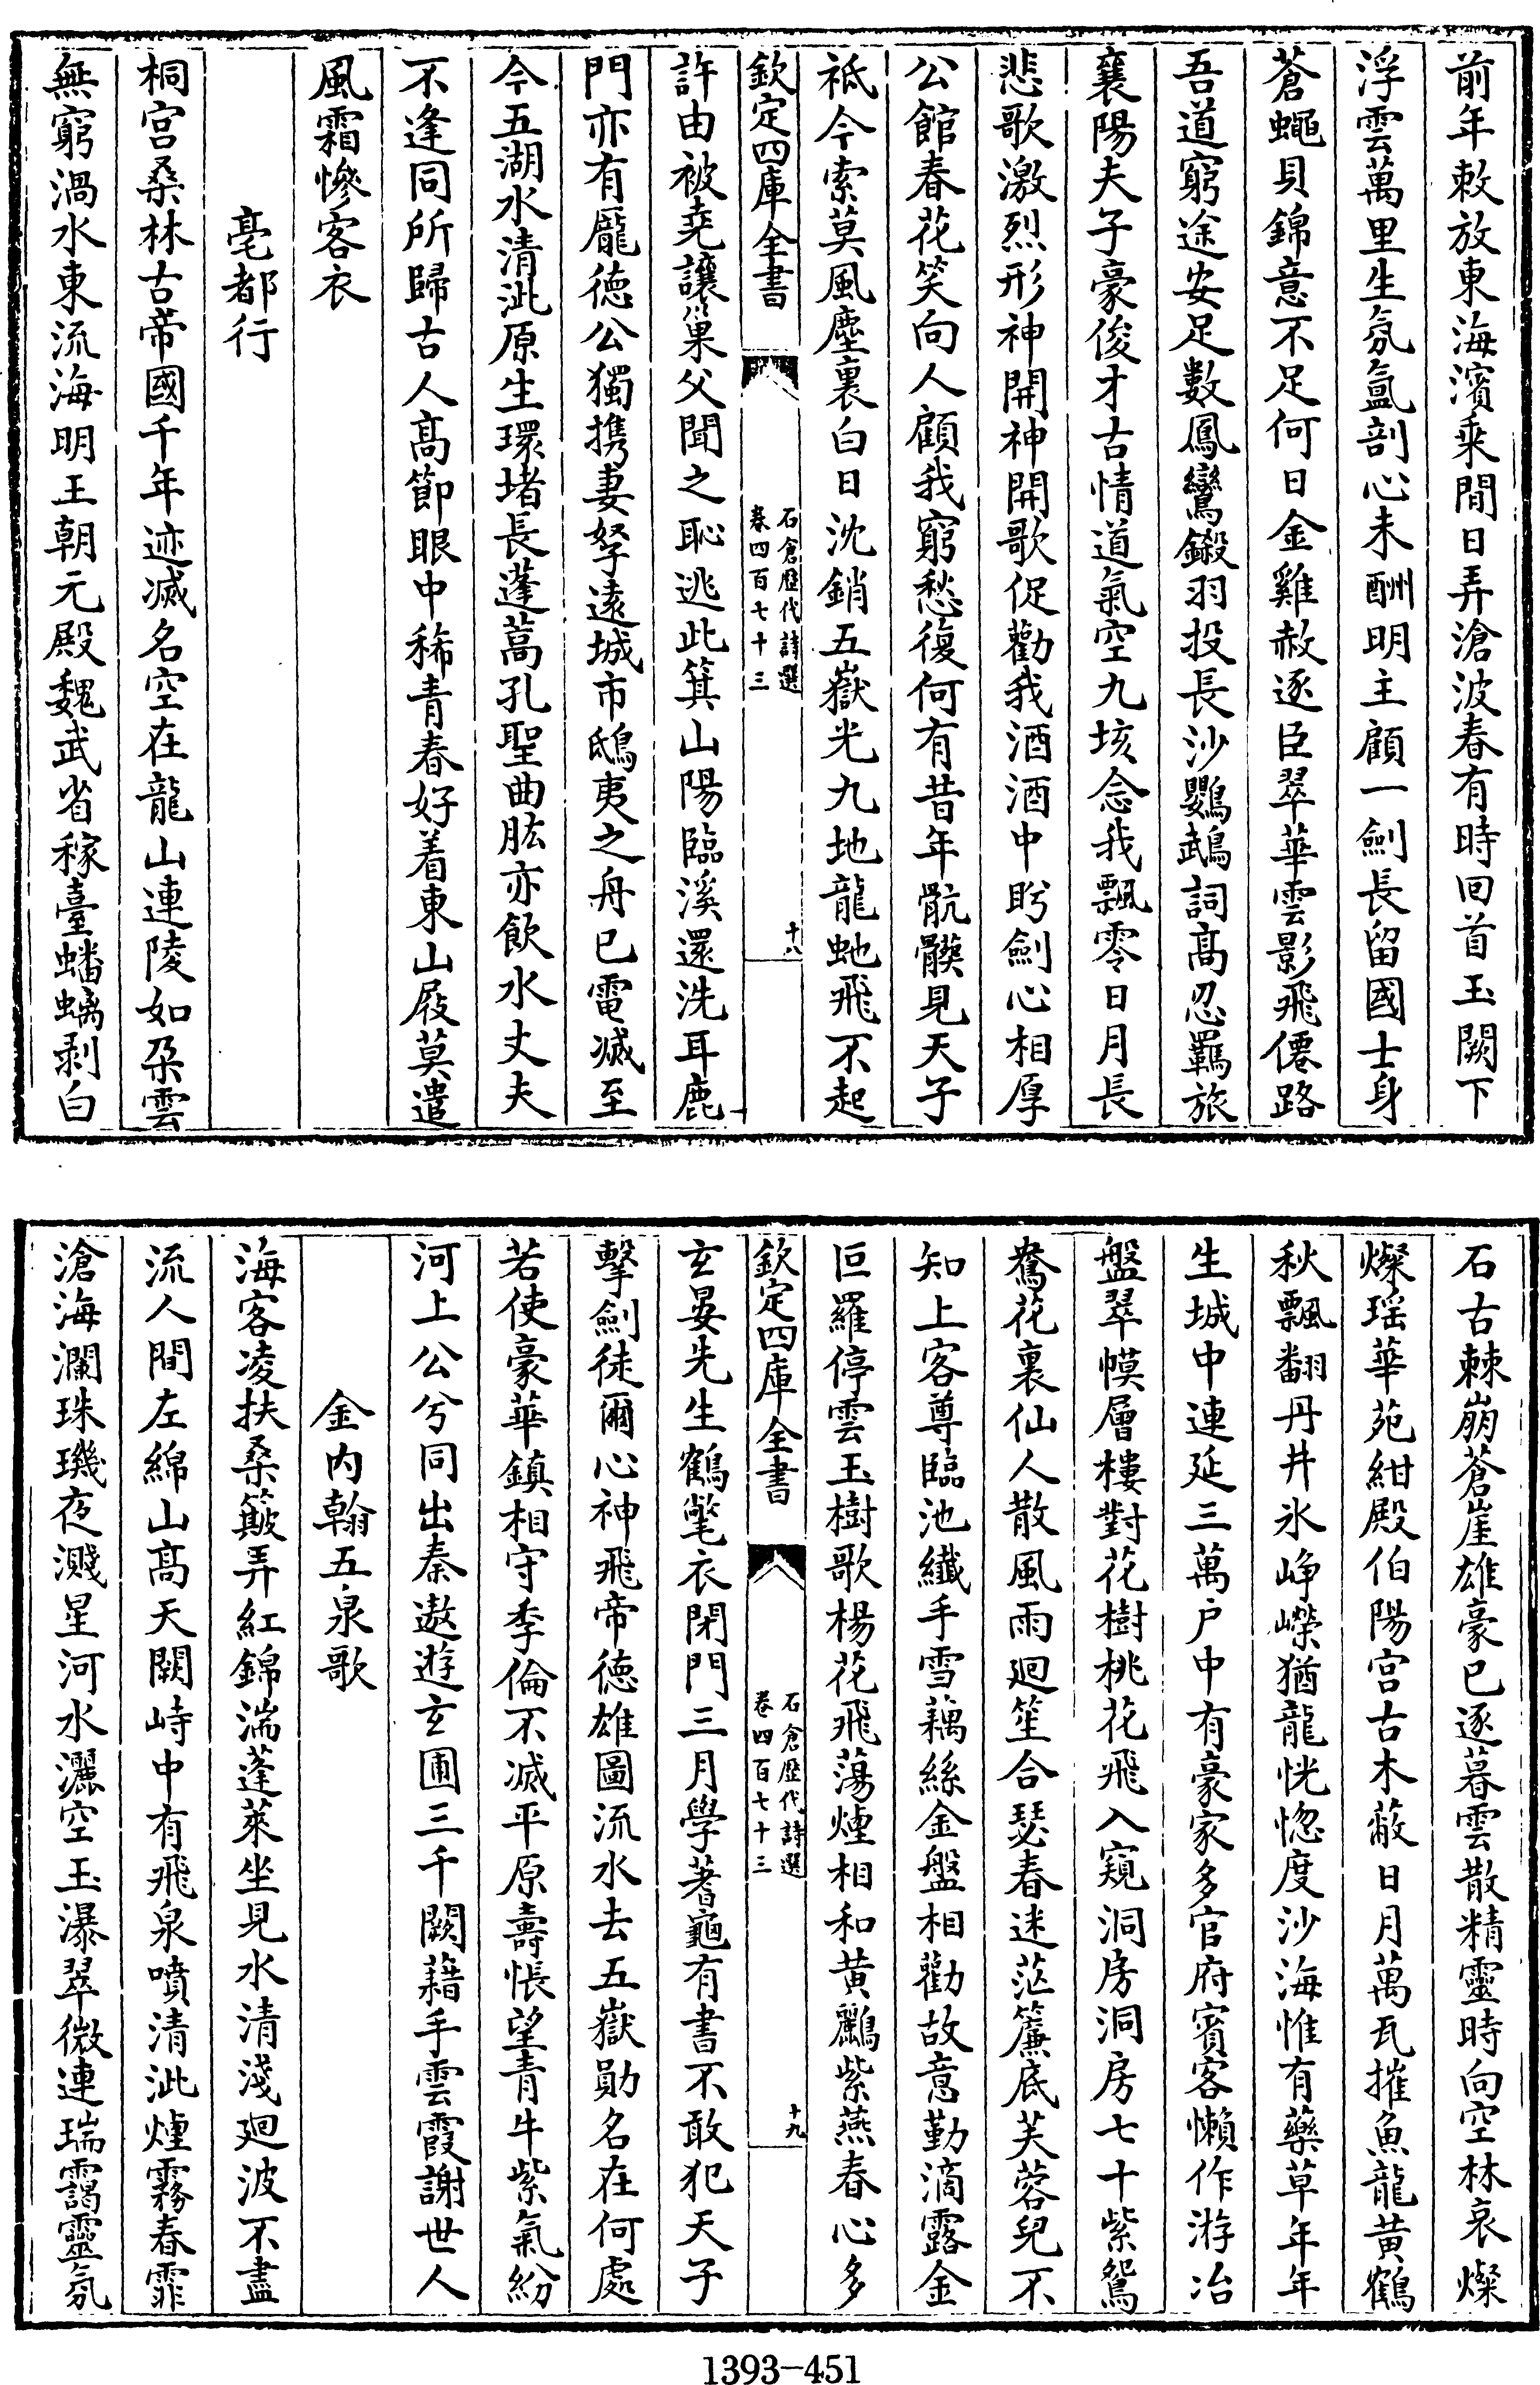 前年敕放東海濱乘閒日弄滄波春有時回首玉闕下
浮雲萬里生氛氳剖心未酬明主顧一劍長留國士身
蒼蠅貝錦意不足何日金雞赦逐臣翠華雲影飛僊路
吾道窮途安足數鳳鸞鎩羽投長沙鸚鵡詞高忍羈旅
襄陽夫子豪俊才古情道氣空九垓念我飄零日月長
悲歌激烈形神開神開歌促勸我酒酒中盻劍心相厚
公館春花笑向人顧我窮愁復何有昔年骯髒見天子
祗今索莫風塵裏白日沈銷五嶽光九地龍虵飛不起
欽定四庫全書
石倉歷代詩選
卷四百七十三
十八
許由被堯讓巢父聞之恥逃此箕山陽臨溪還洗耳鹿
門亦有龎徳公獨携妻孥逺城市鴟夷之舟已電滅至
今五湖水清泚原生環堵長蓬蒿孔聖曲肱亦飲水丈夫
不逢同所歸古人髙節眼中稀青春好着東山屐莫遣
風霜慘客衣
亳都行
桐宫桑林古帝國千年迹滅名空在龍山連陵如朶雲
無窮渦水東流海明王朝元殿魏武省稼臺蟠螭剥白
石古棘崩蒼崖雄豪已逐暮雲散精靈時向空林哀燦
燦瑶華苑紺殿伯陽宫古木蔽日月萬瓦摧魚龍黄鶴
秋飄翻丹井氷峥嶸猶龍恍惚度沙海惟有藥草年年
生城中連延三萬户中有豪家多官府賓客懶作游冶
盤翠幙層樓對花樹桃花飛入窺洞房洞房七十紫鴛
鴦花裏仙人散風雨廻笙合瑟春迷茫簾底芙蓉皃不
知上客尊臨池纎手雪藕絲金盤相勸故意勤滴露金
叵羅停雲玉樹歌楊花飛蕩煙相和黄鸝紫燕春心多
欽定四庫全書
石倉歷代詩選
卷四百七十三
十九
玄晏先生鶴氅衣閉門三月學蓍龜有書不敢犯天子
擊劍徒爾心神飛帝徳雄圖流水去五嶽勛名在何處
若使豪華鎮相守季倫不滅平原壽悵望青牛紫氣紛
河上公兮同出秦遨遊玄圃三千闕藉手雲霞謝世人
金内翰五泉歌
海客凌扶桑簸弄紅錦湍蓬萊坐見水清淺廻波不盡
流人間左綿山髙天闕峙中有飛泉噴清泚煙霧春霏
滄海瀾珠璣夜濺星河水灑空玉瀑翠微連瑞靄靈氛
1393-451